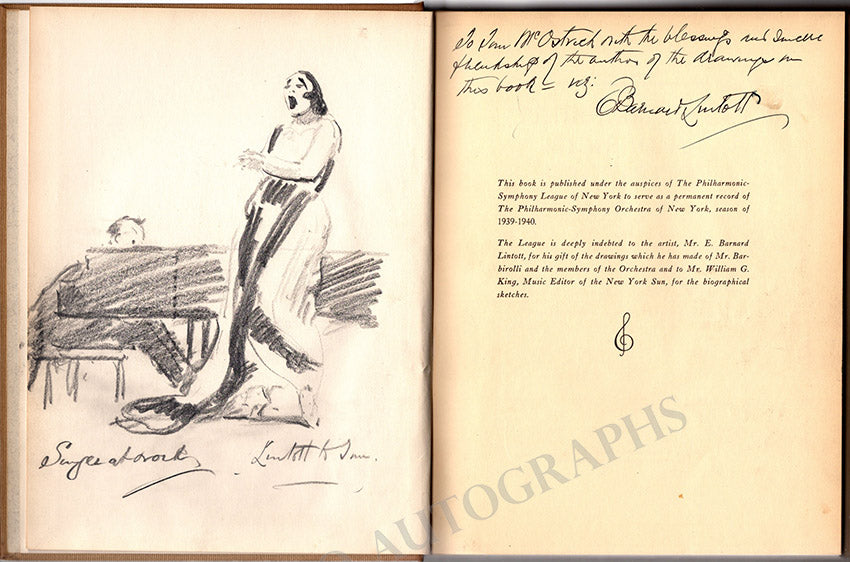 Singer at work
Lintott to Tom.
To Tom McOstrich with the blessings and sincere
friendship of the author of the drawings in
this book =
E Barnard Lintott
This book is published under the auspices of The Philharmonic-
Symphony League of New York to serve as a permanent record of
The Philharmonic-Symphony Orchestra of New York, season of
1939-1940.
The League is deeply indebted to the artist, Mr. E. Barnard
Lintott, for his gift of the drawings which he has made of Mr. Bar-
birolli and the members of the Orchestra and to Mr. William G.
King, Music Editor of the New York Sun, for the biographical
sketches.
AUTOGRAPHS